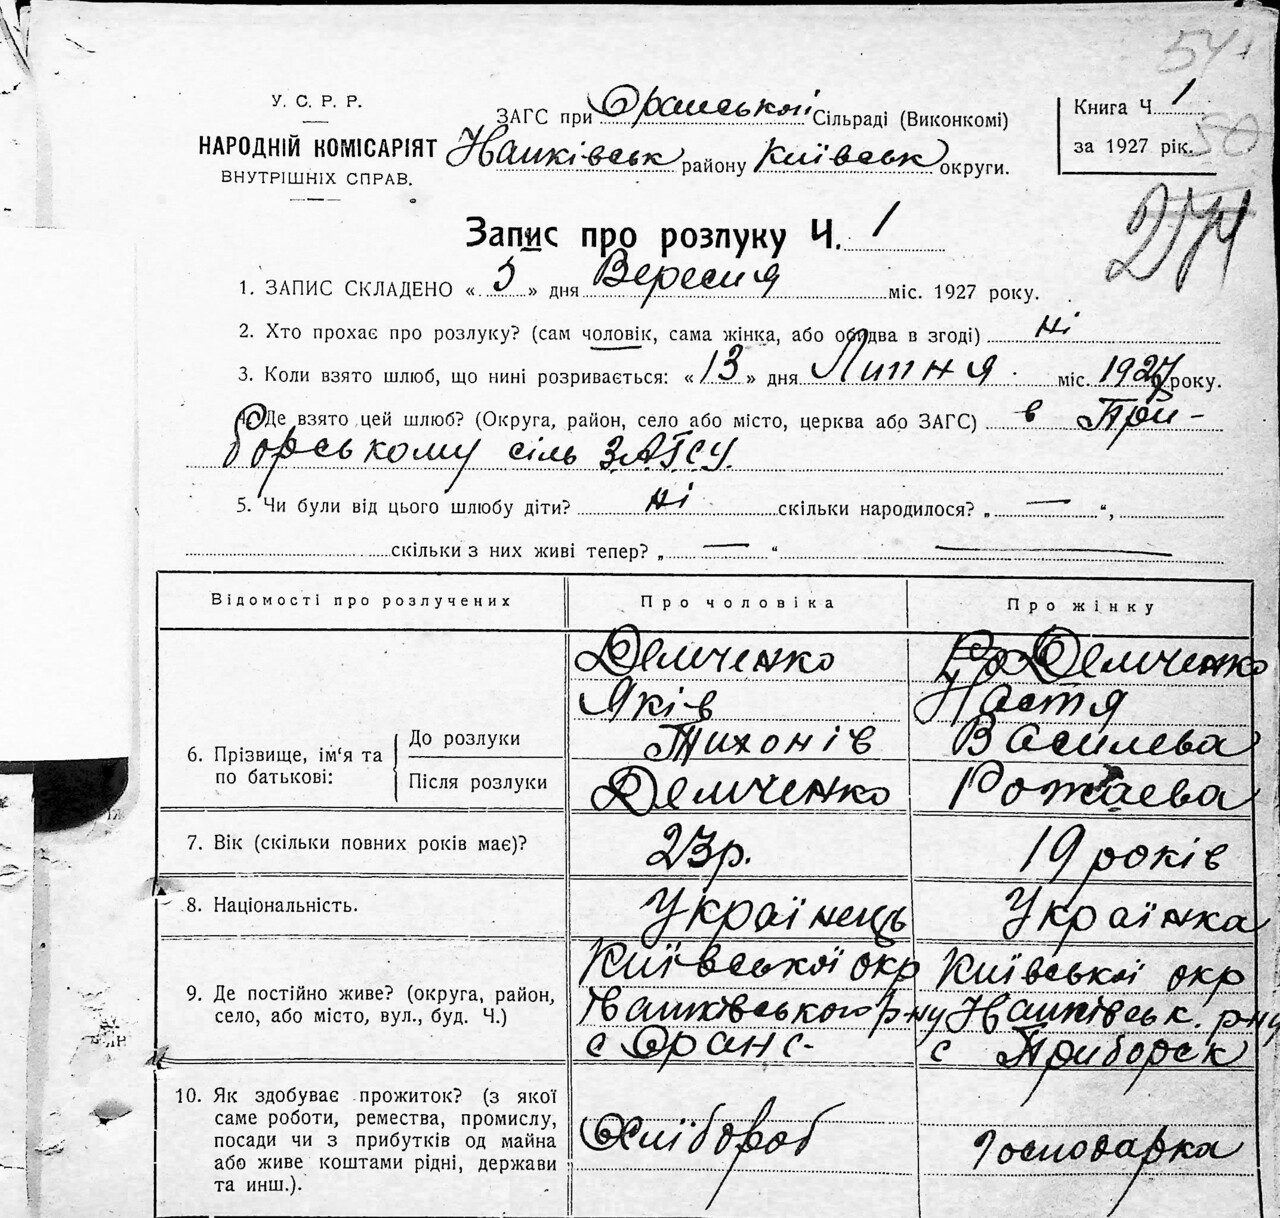 54
У. С. Р. Р.
НАРОДНІЙ КОМІСАРІЯТ
ВНУТРІШНІХ СПРАВ.
ЗАГС при Оранській Сільраді (Виконкомі)
Іванківськ району Київськ округи.
Книга Ч. 1
за 1927 рік. 50
274
Запис про розлуку Ч. 1
1. ЗАПИС СКЛАДЕНО « 5 » дня Вересня міс. 1927 року.
2. Хто прохає про розлуку? (сам чоловік, сама жінка, або обидва в згоді) ні
3. Коли взято шлюб, що нині розривається: « 13 » дня Липня міс. 1927 року.
4. Де взято цей шлюб? (Округа, район, село або місто, церква або ЗАГС) в При-
борському сіль ЗАГСУ.
5. Чи були від цього шлюбу діти? ні скільки народилося? „ — “,
скільки з них живі тепер? „ — “ —
Відомості про розлучених Про чоловіка Про жінку
6. Прізвище, ім‘я та по батькові:
До розлуки
Демченко Яків Тихонів
Демченко Настя Василева
Після розлуки
Демченко
Рожаева
7. Вік (скільки повних років має)? 23 р. 19 років
8. Національність. Українець Українка
9. Де постійно живе? (округа, район,
село, або місто, вул., буд. Ч.)
Київської окр
Іванківського р-ну
с Оранє-
Київської окр
Іванківськ. р-ну
с Приборск
10. Як здобуває прожиток? (з якої
саме роботи, ремества, промислу,
посади чи з прибутків од майна
або живе коштами рідні, держави
та инш.).
Хлібороб
Господарка